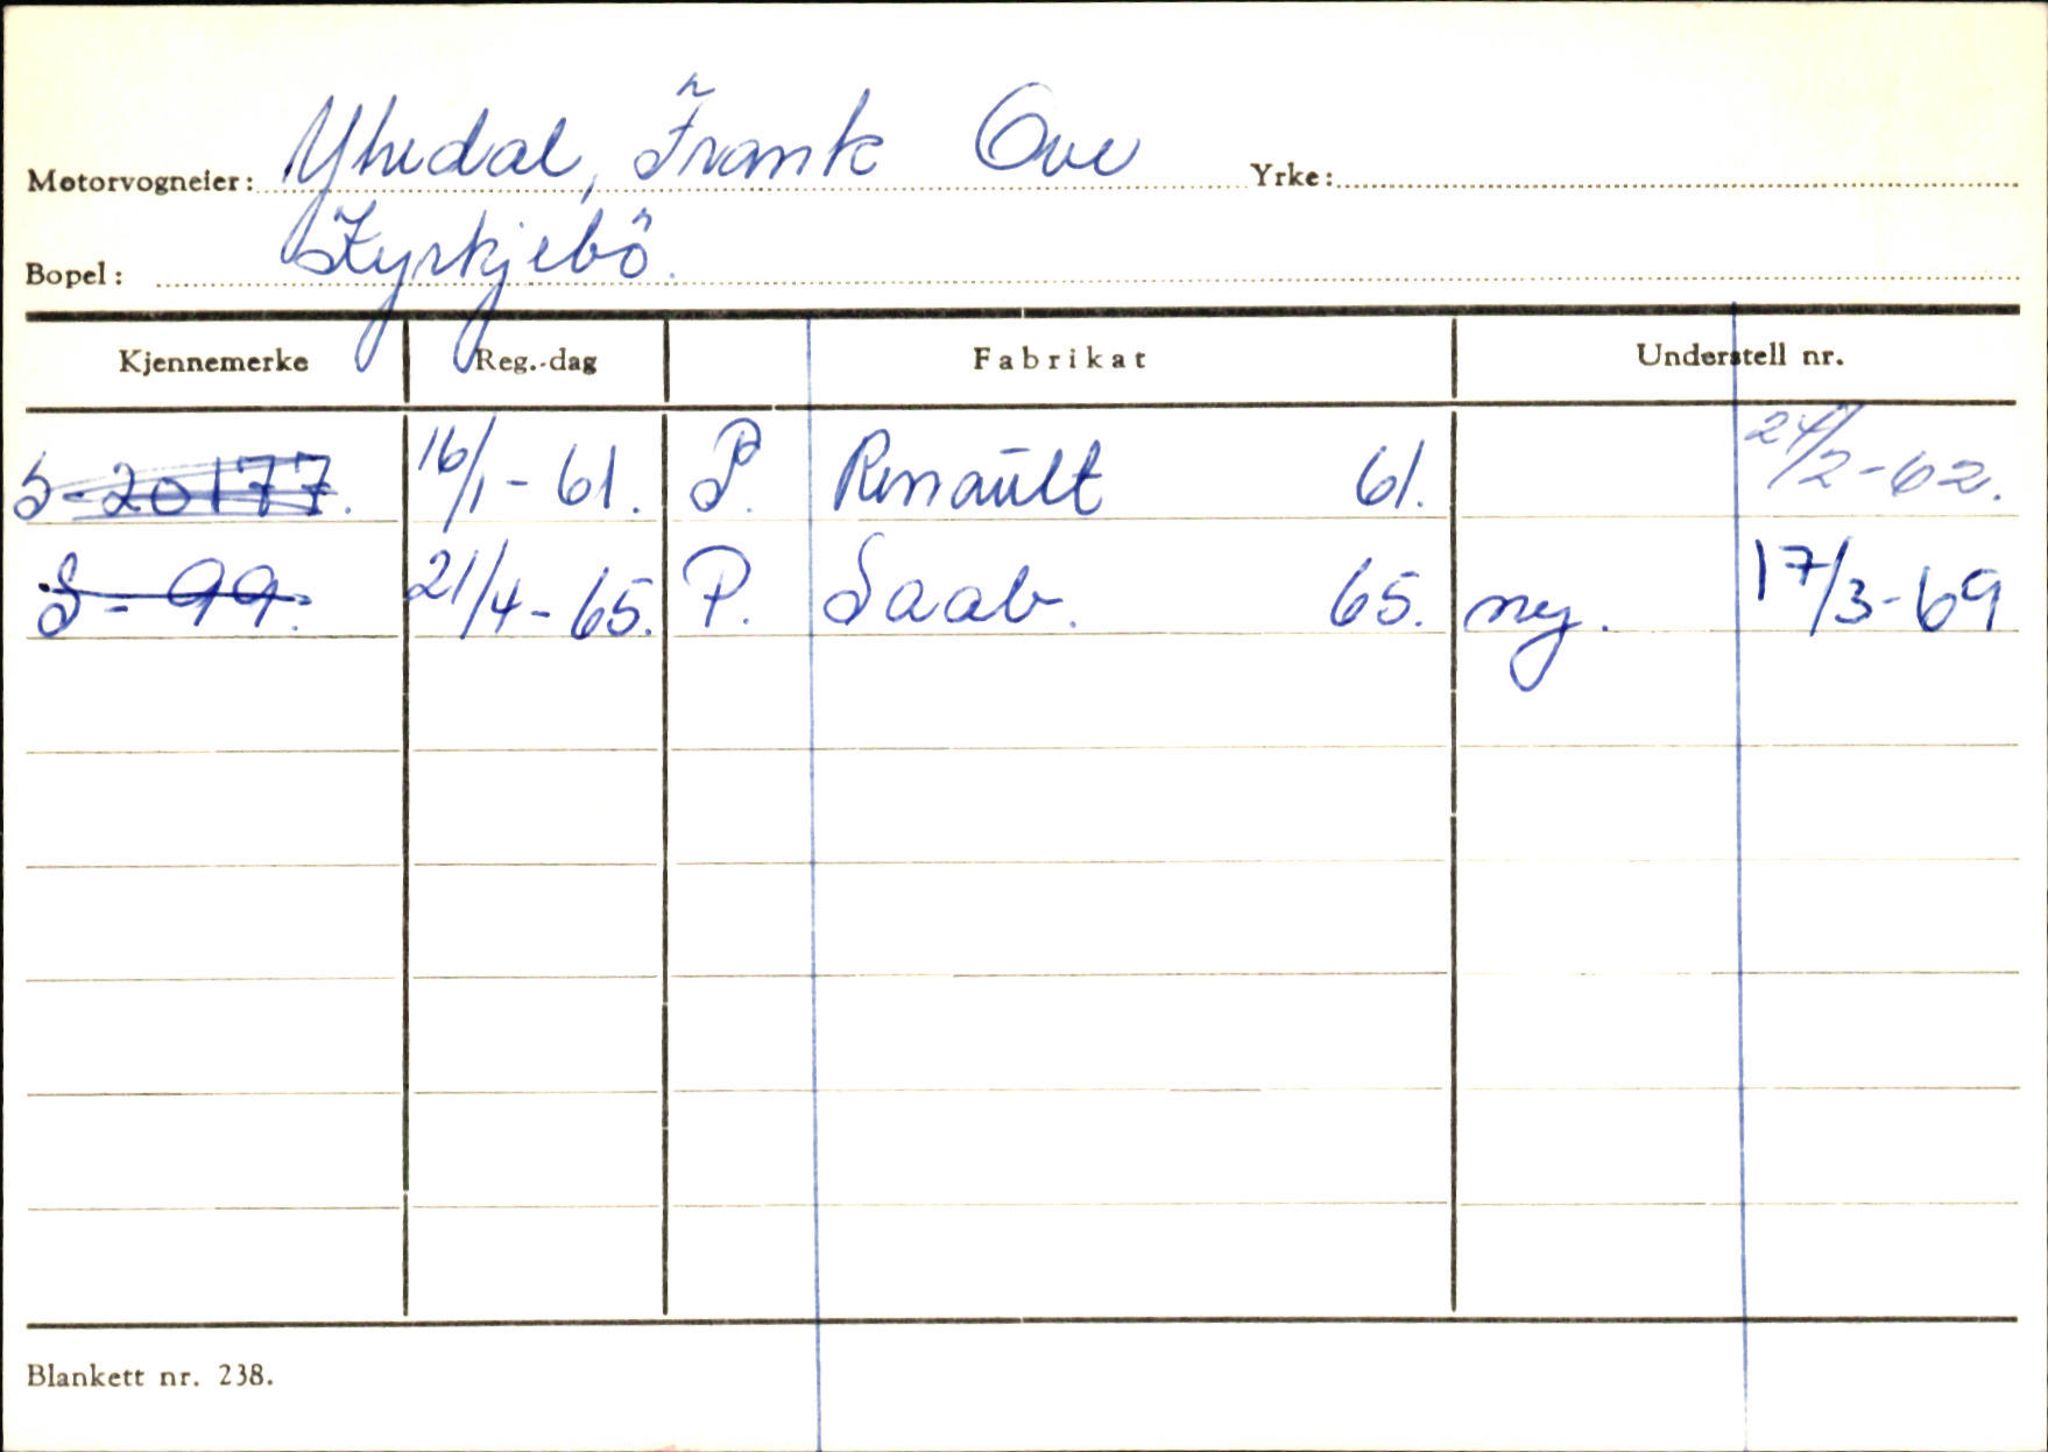 Motorvogneier: Ytredal, Frank Ove Yrke:
Bopel: Kyrkjebö.
Kjennemerke Reg.-dag Fabrikat Understell nr.
S-20177. 16/1-61. P. Renault 61. 24/2-62.
S-99. 21/4-65. P. Saab. 65. ny. 17/3-69
Blankett nr. 238.